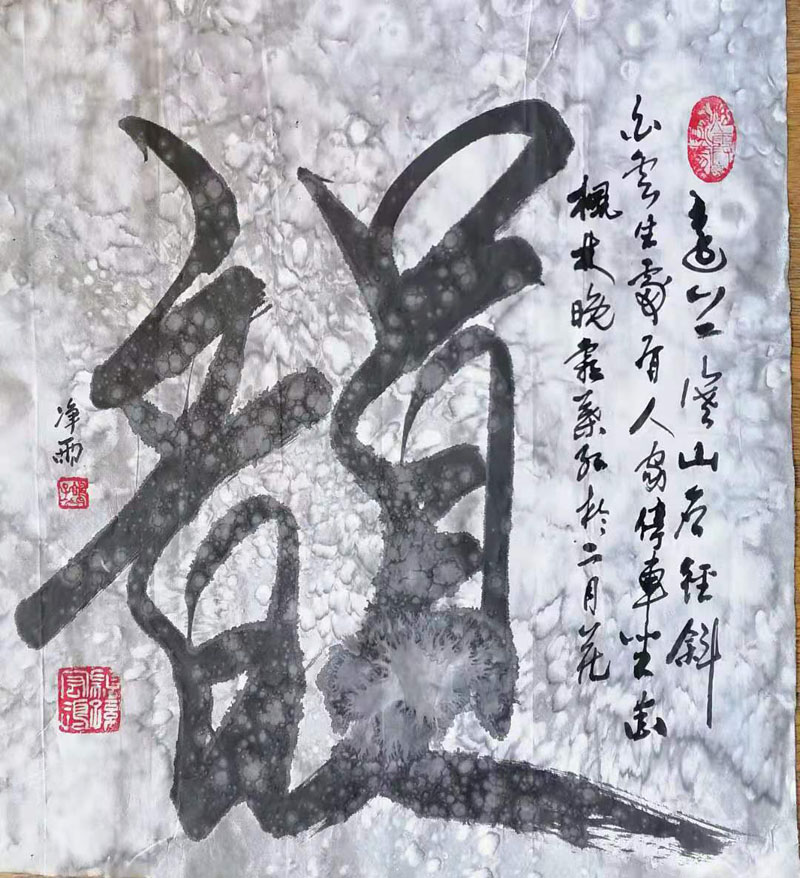 遠上寒山石徑斜
白雲生處有人家停車坐愛
楓林晚霜葉紅於二月花
龍
净雨